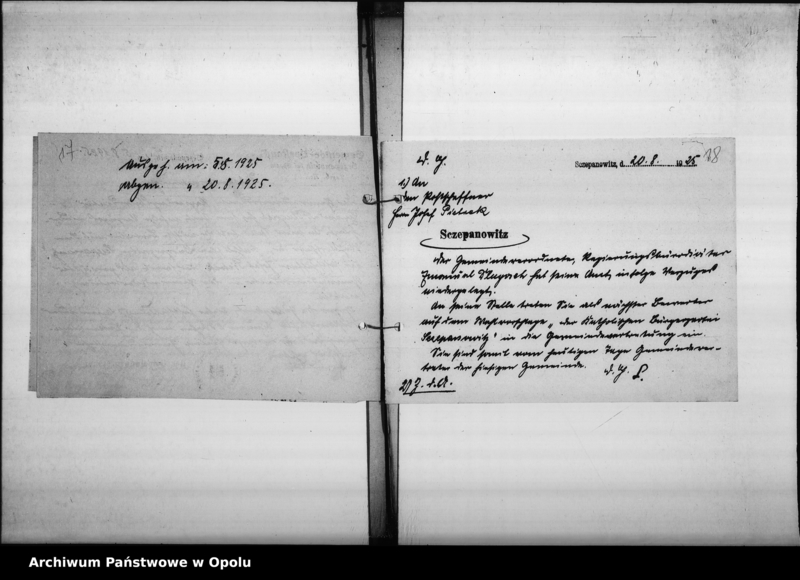 17
Ausgeh. am: 5.5.1925
Abgen. " 20.8.1925.
Sczepanowitz, d. 20. 8. 1925
18
d. G.
1) An
den Postschaffner
Herrn Josef
Sczepanowitz
Der Gemeindeverordnete, Regierungsbürodiätar
Emanuel hat sein Amt infolge Verzuges
niedergelegt.
An seine Stelle treten Sie als nächster Bewerber
auf dem Wahlvorschlage „der Katholischen Bürgerpartei
Sczepanowitz" in die Gemeindevertretung ein.
Sie sind somit vom heutigen Tage Gemeindever-
treter der hiesigen Gemeinde. d. G.
2) Z. d. A.
Archiwum Państwowe w Opolu